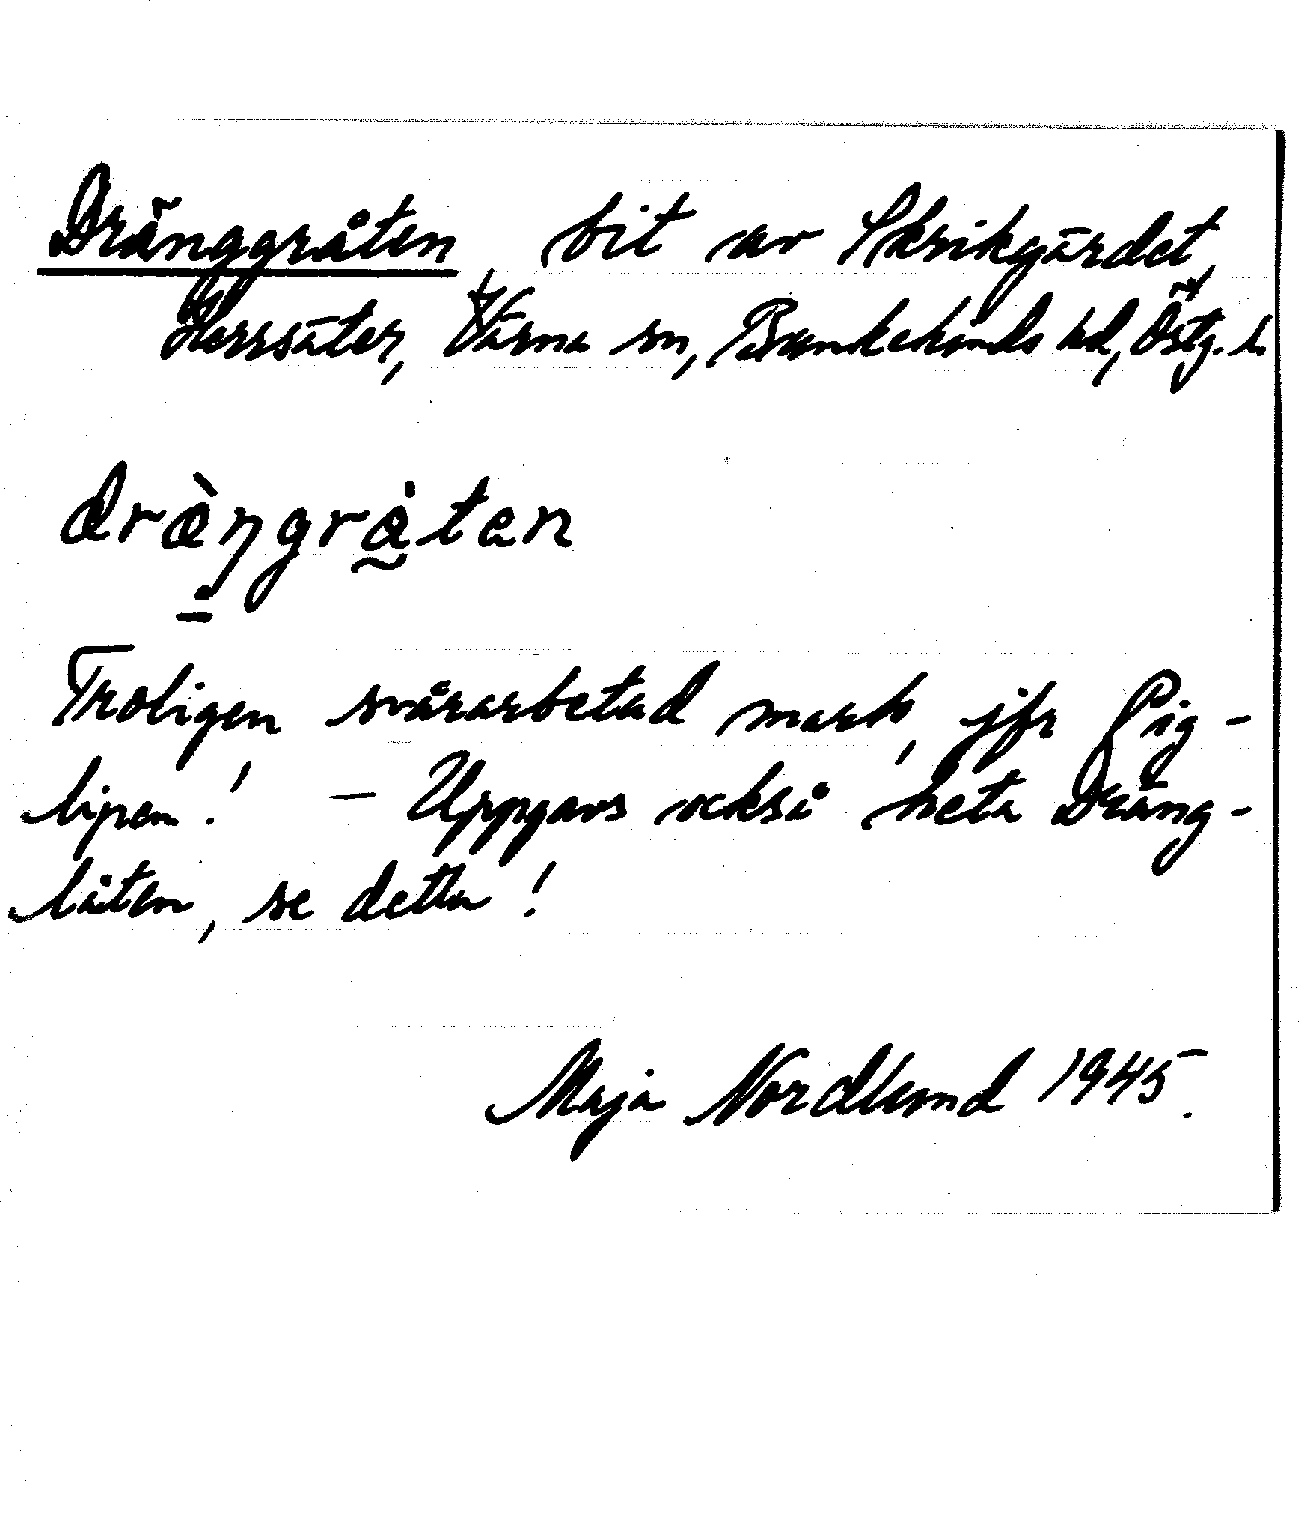 Dränggråten, bit av Skrikgärdet,
Herrsäter, Värna sn, Bankekinds hd, Östg. l.
dræ̀ŋgrå̀tən
Troligen svårarbetad mark, jfr Pig-
lipen! – Uppgavs också heta Dräng-
låten, se detta!
Maja Nordlund 1945.